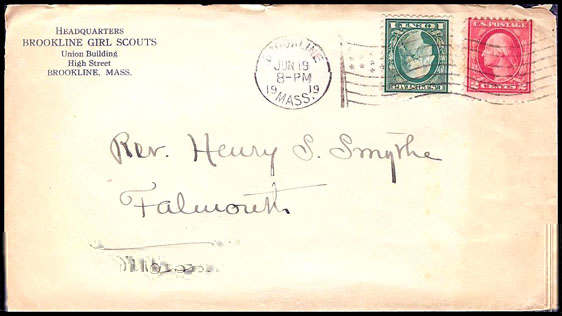 HEADQUARTERS
BROOKLINE GIRL SCOUTS
Union Building
High Street
BROOKLINE, MASS.
BROOKLINE
JUN 19
8-PM
19 19
MASS.
1 CENT 1
U.S. POSTAGE
U.S. POSTAGE
2 CENTS 2
Rev. Henry S. Smythe
Falmouth
Mass